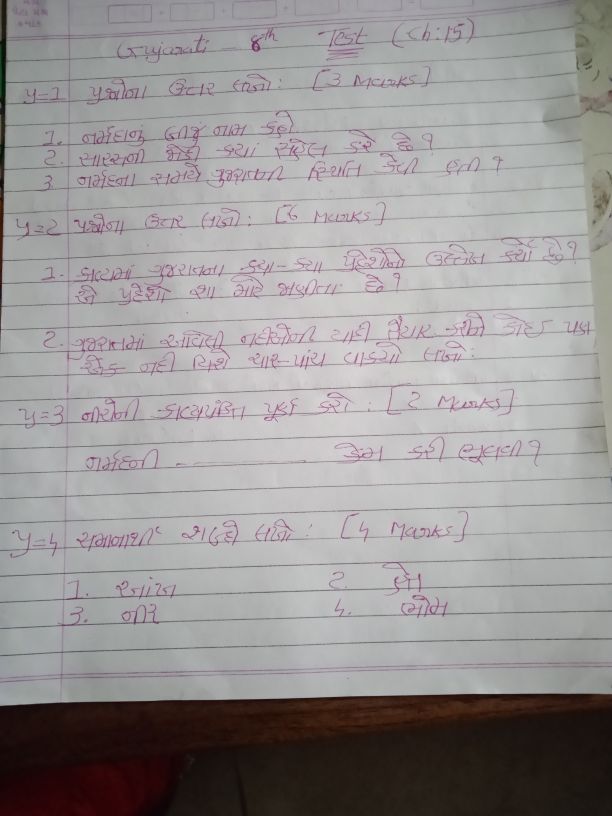 Gujarati - 8th Test (Ch:15)
પ્ર=1 પ્રશ્નોના ઉત્તર લખો: [3 Marks]
1. નર્મદાનું બીજું નામ કહો.
2. સારસની જોડી ક્યાં કરે છે?
3. નર્મદના સમયે ગુજરાતની સ્થિતિ કેવી હતી?
પ્ર=2 પ્રશ્નોના ઉત્તર લખો: [6 Marks]
1. કાવ્યમાં ગુજરાતના ક્યા-ક્યા પ્રદેશોનો ઉલ્લેખ કર્યો છે?
તે પ્રદેશો શા માટે જાણીતા છે?
2. ગુજરાતમાં આવેલી નદીઓની યાદી તૈયાર કરીને કોઈ પણ
એક નદી વિશે ચાર-પાંચ વાક્યો લખો:
પ્ર=3 નીચેની કાવ્યપંક્તિ પૂર્ણ કરો: [2 Marks]
નર્મદની ---------- કેમ કરી ભૂલવી?
પ્ર=4 સમાનાર્થી શબ્દો લખો: [4 Marks]
1. આંખ 2.
3. નીર 4. ભોમ